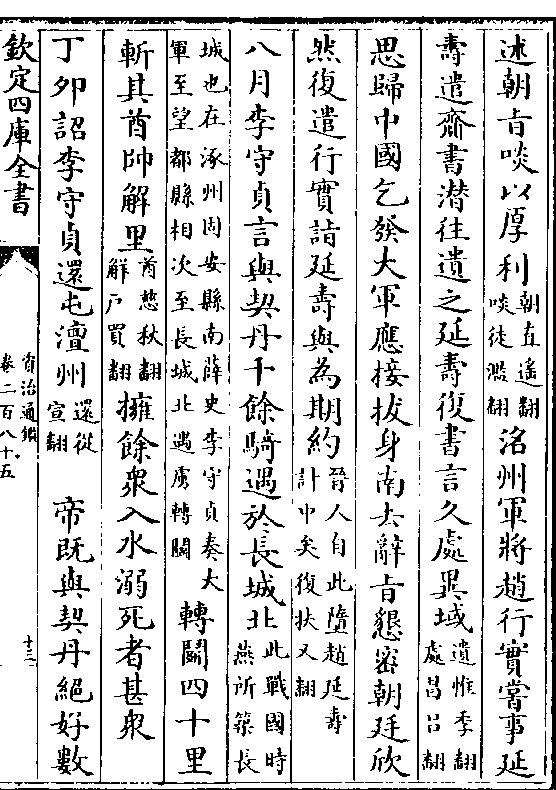 述朝旨啖以厚利朝直遙翻啖徒濫翻洺州軍將趙行實嘗事延
壽遣齎書潛往遺之延壽復書言久處異域遺惟季翻處昌呂翻
思歸中國乞發大軍應接拔身南去辭旨懇密朝廷欣
然復遣行實詣延壽與為期約晉人自此墮趙延壽計中矣復扶又翻
八月李守貞言與契丹千餘騎遇於長城北此戰國時燕所築長
城也在涿州固安縣南薛史李守貞奏大軍至望都縣相次至長城北遇虜轉鬭轉鬭四十里
斬其酋帥解里酋慈秋翻解戶買翻擁餘衆入水溺死者甚衆
丁卯詔李守貞還屯澶州還從宣翻 帝既與契丹絕好數
欽定四庫全書
資治通鑑
卷二百八十五
十三